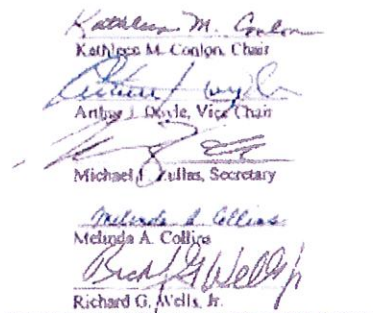 Kathleen M. Conlon
Kathleen M. Conlon, Chair
Arthur J. Doyle, Vice Chair
Michael Zullas, Secretary
Melinda A Collins
Melinda A. Collins
Richard G. Wells, Jr.